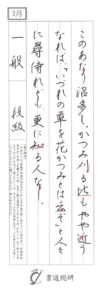 3月
このあたり沼多し。かつみ刈る比もやや近う
なれば、いづれの草を花かつみとは云ぞと、人々
に尋侍れども、更に知る人なし。
一般
段級
書道総研